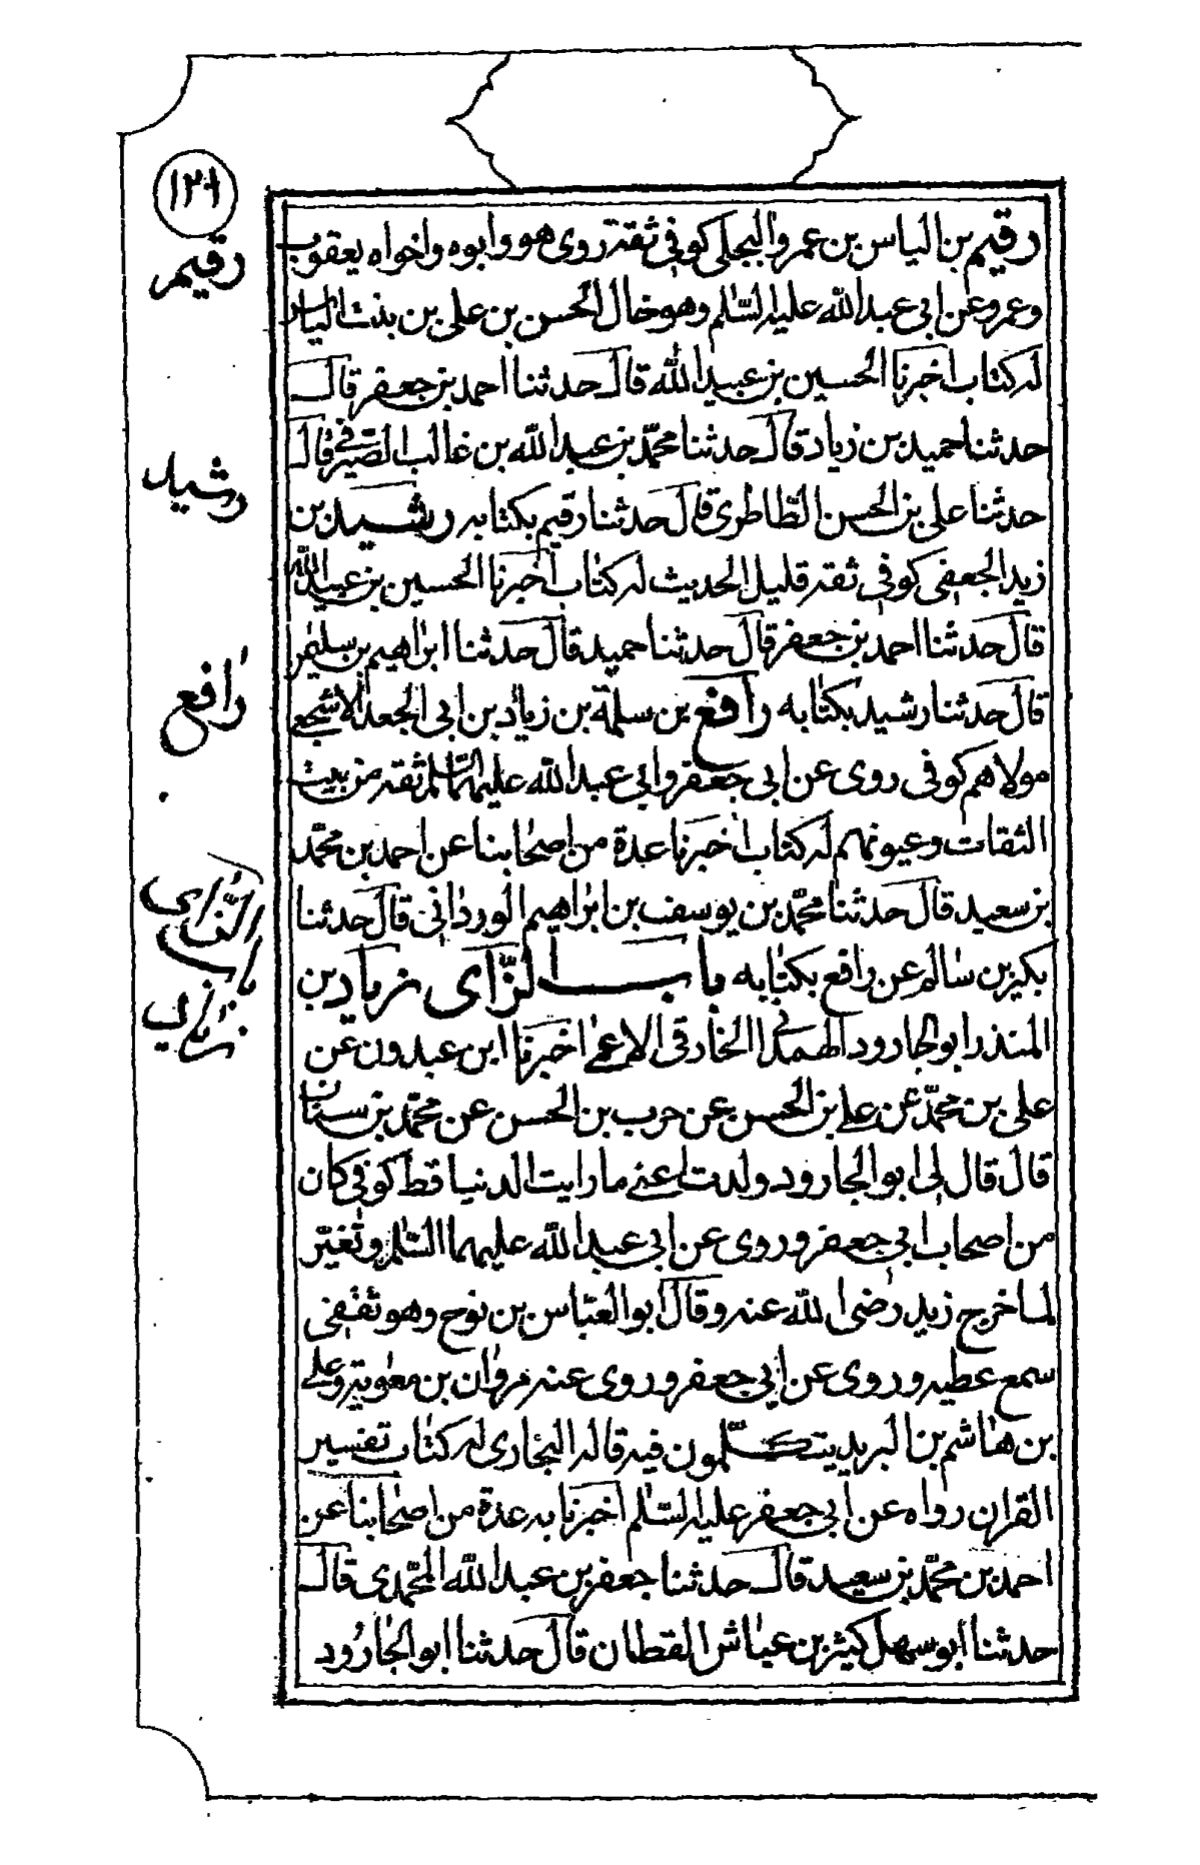 ١٢١
رقيم
رقيم بن الياس بن عمرو البجلى كوفى ثقة روى هو وابوه واخواه يعقوب
وعمرو عن ابى عبد الله عليه السّلم وهو خال الحسن بن على بن بنت الياس
له كتاب اخبرنا الحسين بن عبيد الله قال حدثنا احمد بن جعفر قال
حدثنا حميد بن زياد قال حدثنا محمّد بن عبد الله بن غالب الصّيرفى قال
رشيد
حدثنا على بن الحسن الطّاطرى قال حدثنا رقيم بكتابه رشيد بن
زيد الجعفى كوفى ثقة قليل الحديث له كتاب اخبرنا الحسين بن عبيد الله
قال حدثنا احمد بن جعفر قال حدثنا حميد قال حدثنا ابراهيم بن سليمن
رافع
قال حدثنا رشيد بكتابه رافع بن سلمة بن زياد بن ابى الجعد الاشجعى
مولاهم كوفى روى عن ابى جعفر وابى عبد الله عليهما السّلم ثقة من بيت
الثقات وعيونهم له كتاب اخبرنا عدة من اصحابنا عن احمد بن محمّد
بن سعيد قال حدثنا محمّد بن يوسف بن ابراهيم الوردانى قال حدثنا
باب الزّاى
بكير بن سالم عن رافع بكتابه باب الزّاى زياد بن
زياد
المنذر ابو الجارود الهمدانى الخارقى الاعمى اخبرنا ابن عبدون عن
على بن محمّد عن على بن الحسن عن حرب بن الحسن عن محمّد بن سنان
قال قال لى ابو الجارود ولدت اعمى ما رايت الدنيا قط كوفى كان
من اصحاب ابى جعفر وروى عن ابى عبد الله عليهما السّلم وتغيّر
لما خرج زيد رضى الله عنه وقال ابو العبّاس بن نوح وهو ثقفى
سمع عطيه وروى عن ابى جعفر وروى عنه مروان بن معوية وعلى
بن هاشم بن البريد يتكلّمون فيه قاله البخارى له كتاب تفسير
القران رواه عن ابى جعفر عليه السّلم اخبرنا به عدة من اصحابنا عن
احمد بن محمّد بن سعيد قال حدثنا جعفر بن عبد الله المحمّدى قال
حدثنا ابو سهل كثير بن عياش القطان قال حدثنا ابو الجارود